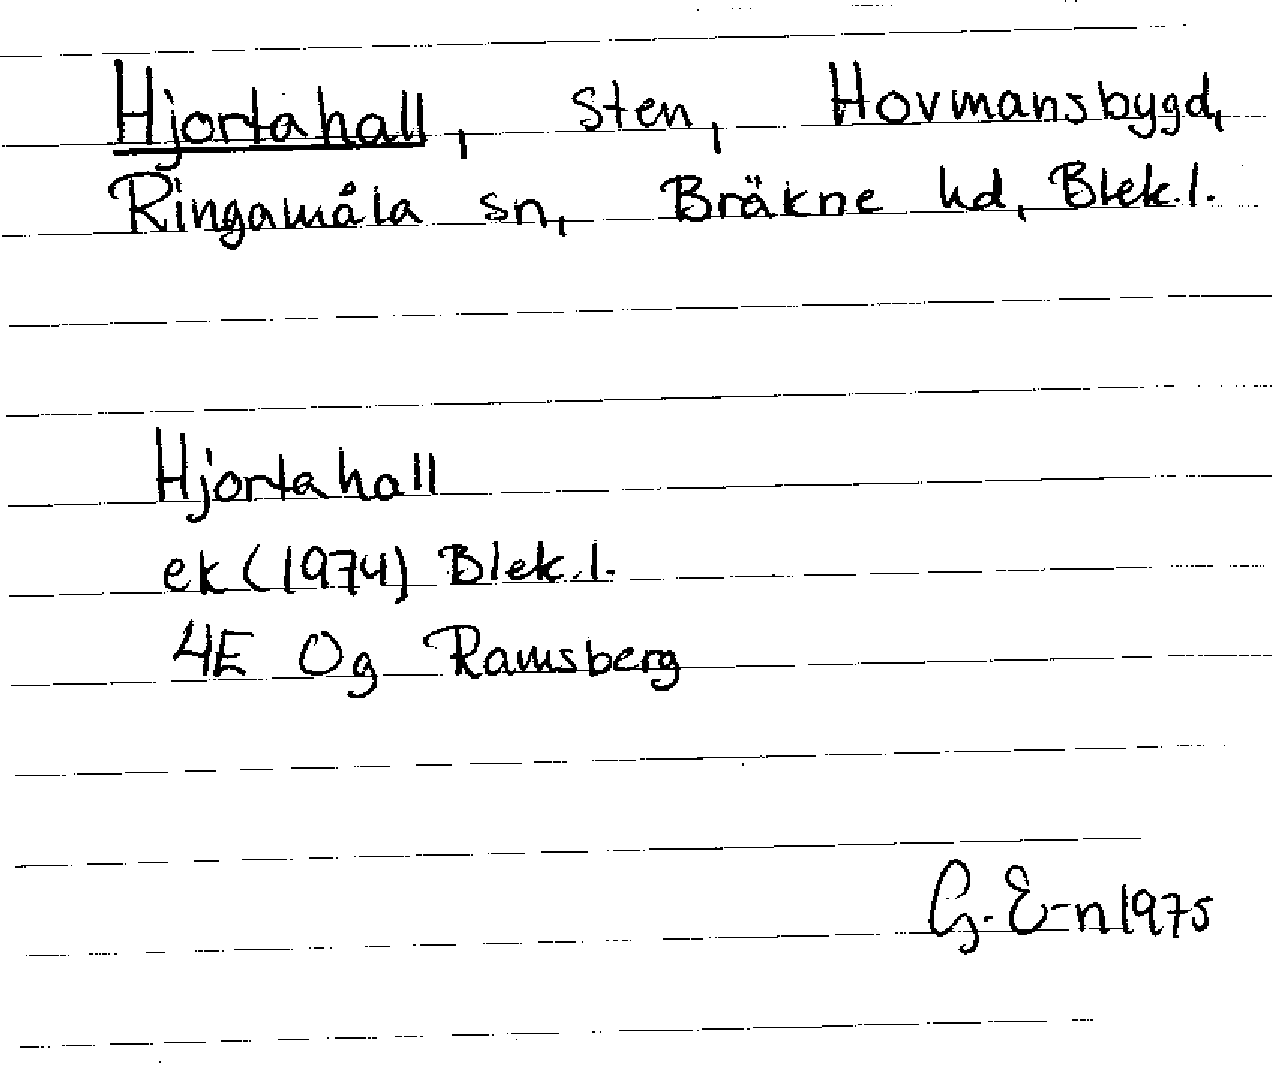 Hjortahall, sten, Hovmansbygd,
Ringamåla sn, Bräkne hd, Blek.l.
Hjortahall
ek (1974) Blek.l.
4E Og Ramsberg
G. E-n 1975